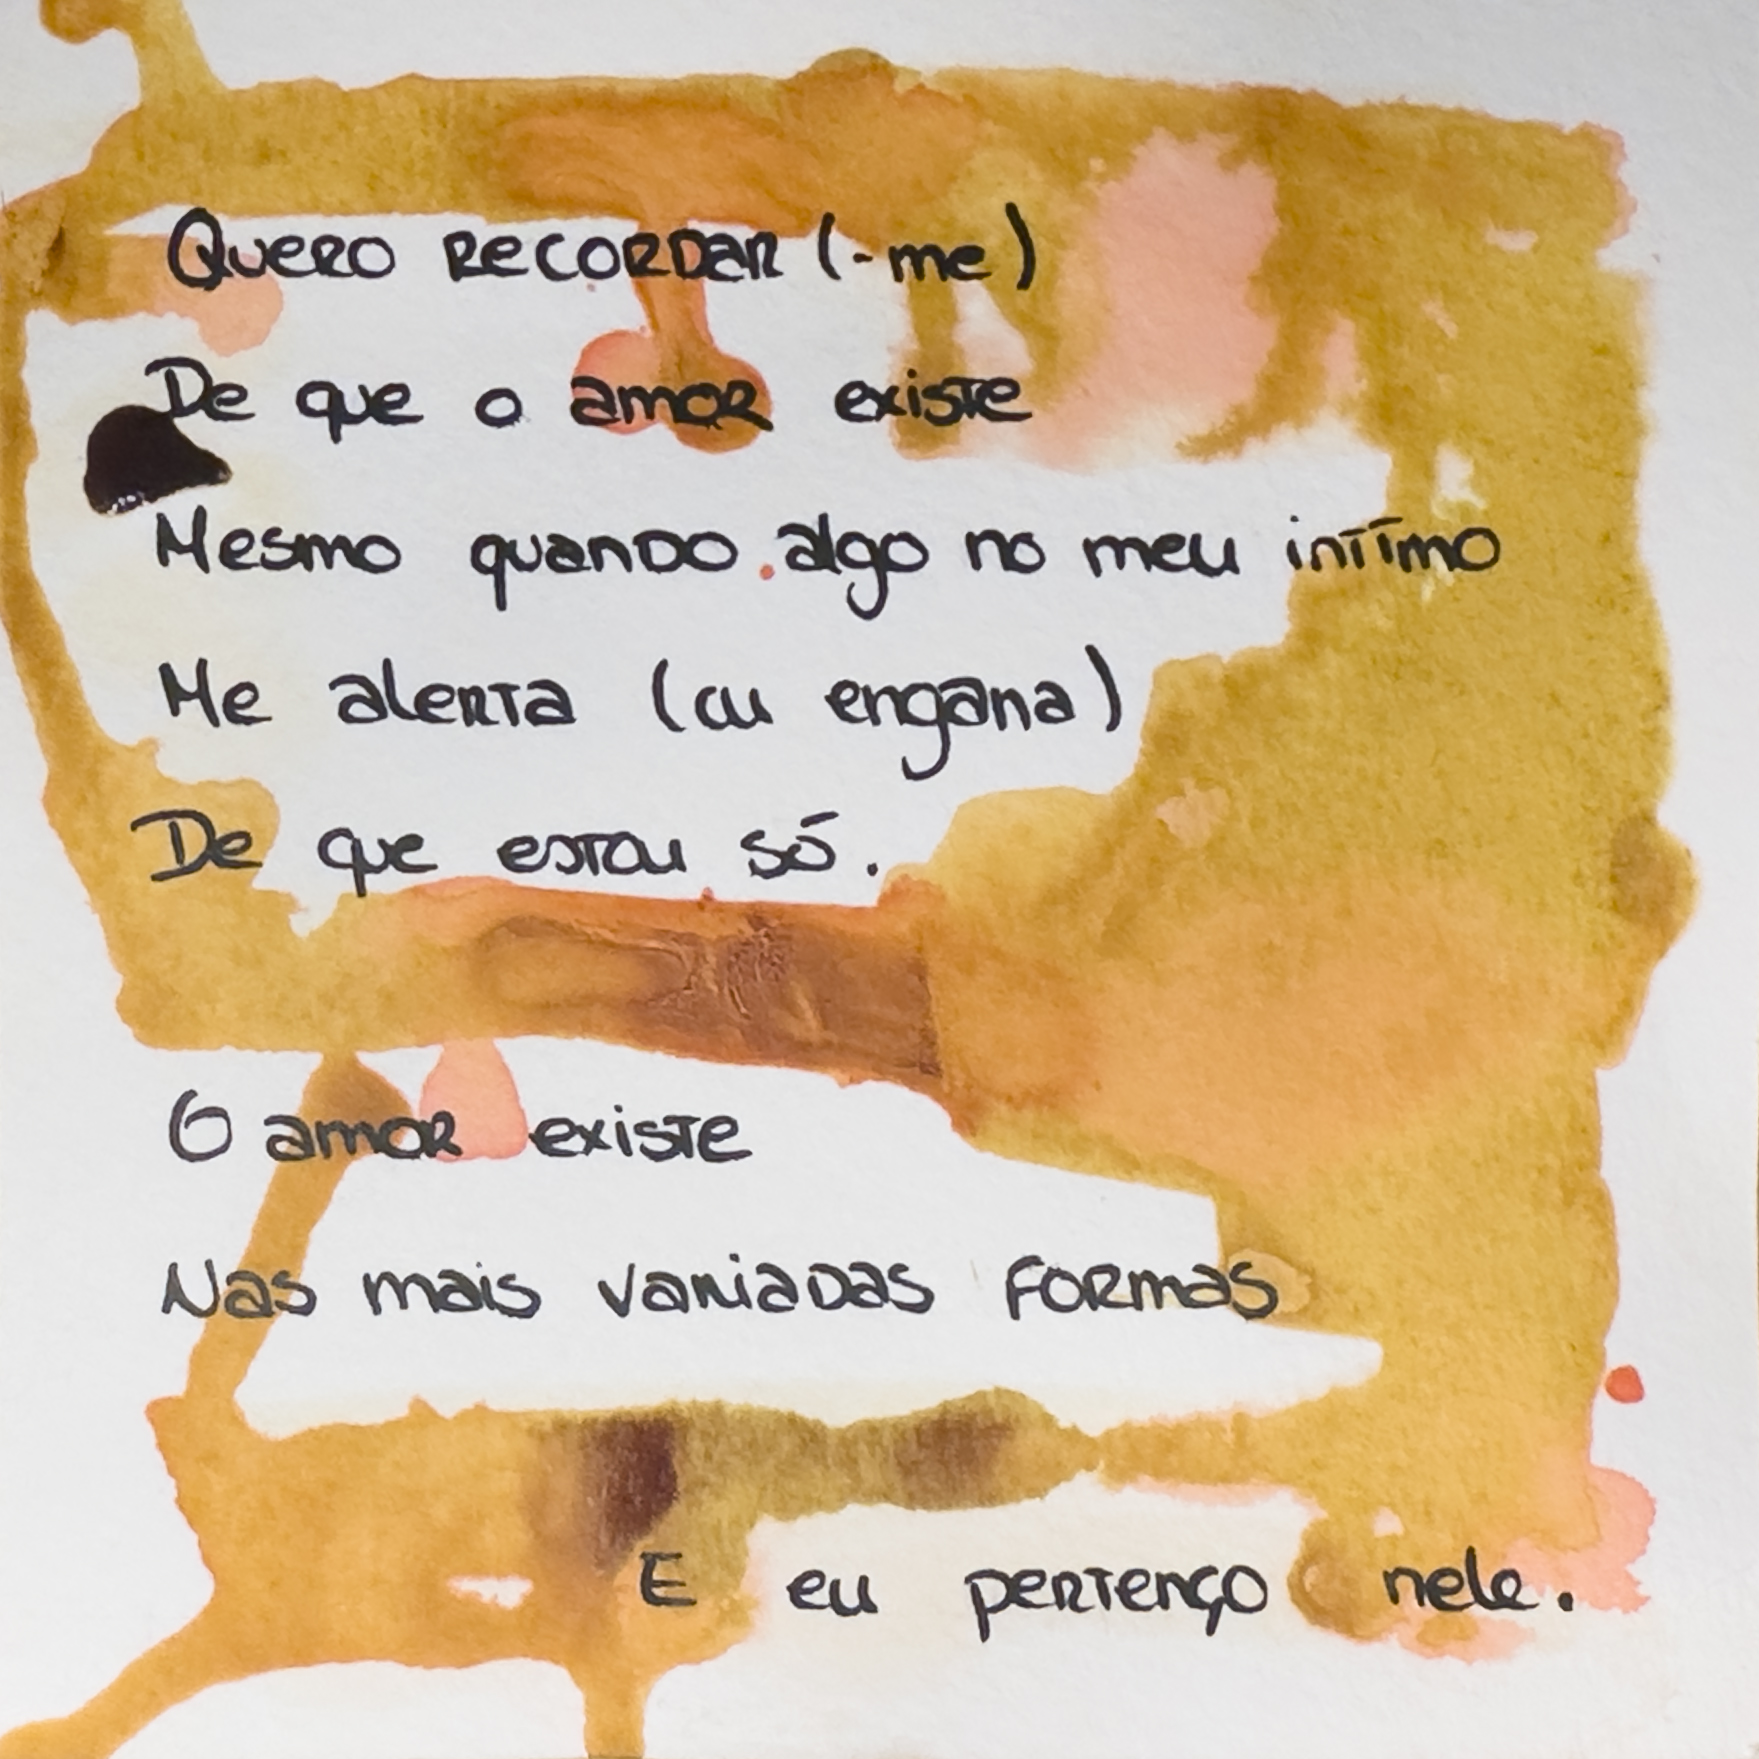 Quero recordar (-me)
De que o amor existe
Mesmo quando algo no meu intímo
Me alerta (ou engana)
De que estou só.
O amor existe
Nas mais variadas formas
E eu pertenço nele.